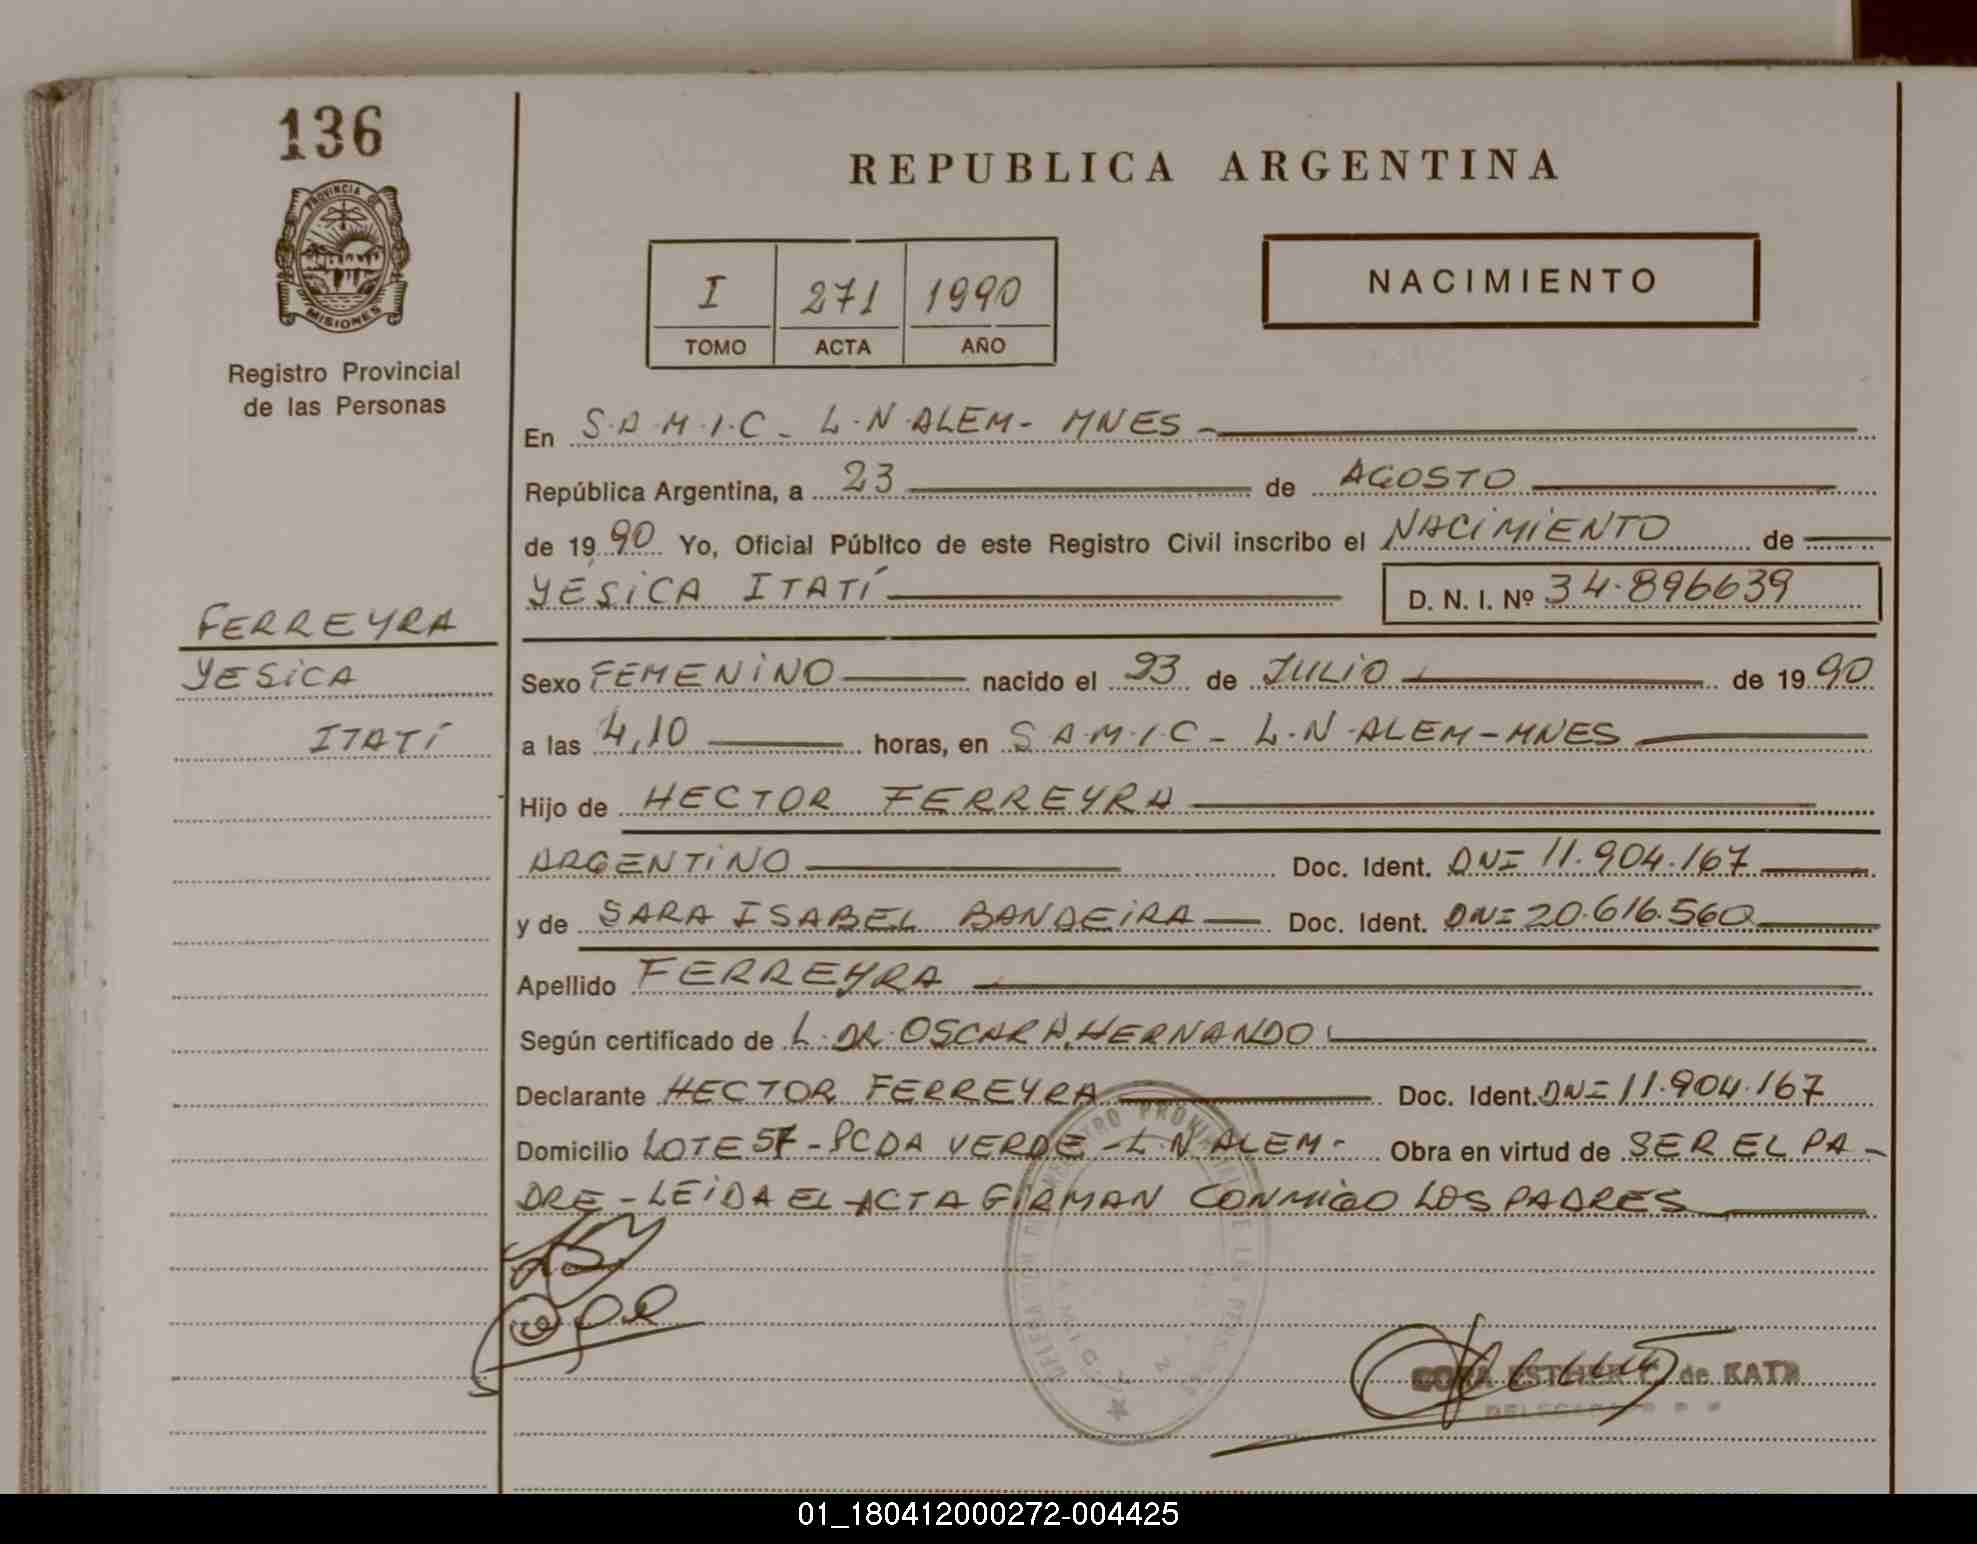 136
PROVINCIA
MISIONES
Registro Provincial
de las Personas
REPUBLICA ARGENTINA
I 271 1990
TOMO ACTA AÑO
NACIMIENTO
En S.A.M.I.C - L.N.ALEM - MNES -
República Argentina, a 23 de AGOSTO
de 1990 Yo, Oficial Público de este Registro Civil inscribo el NACIMIENTO de
YÉSICA ITATÍ D. N. I. Nº 34.896639
FERREYRA
YESICA
ITATÍ
Sexo FEMENINO nacido el 23 de JULIO de 1990
a las 4,10 horas, en S.A.M.I.C - L.N.ALEM - MNES
Hijo de HECTOR FERREYRA
ARGENTINO Doc. Ident. DNI 11.904.167
y de SARA ISABEL BANDEIRA Doc. Ident. DNI 20.616.560
Apellido FERREYRA
Según certificado de L. DR. OSCAR A. HERNANDO
Declarante HECTOR FERREYRA Doc. Ident. DNI 11.904.167
Domicilio LOTE 57 - PCDA VERDE - L.N.ALEM - Obra en virtud de SER EL PA-
DRE - LEIDA EL ACTA FIRMAN CONMIGO LOS PADRES
ESTHER de KATZ
01_180412000272-004425